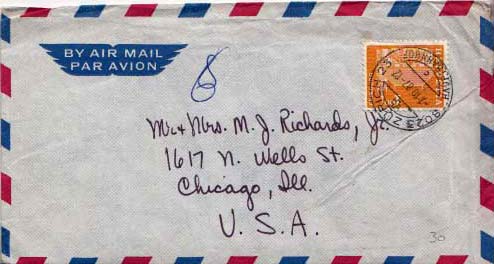 BY AIR MAIL
PAR AVION
8
Mr + Mrs. M. J. Richards, Jr.
1617 N. Wells St.
Chicago, Ill.
U. S. A.
8023 ZÜRICH 23
30